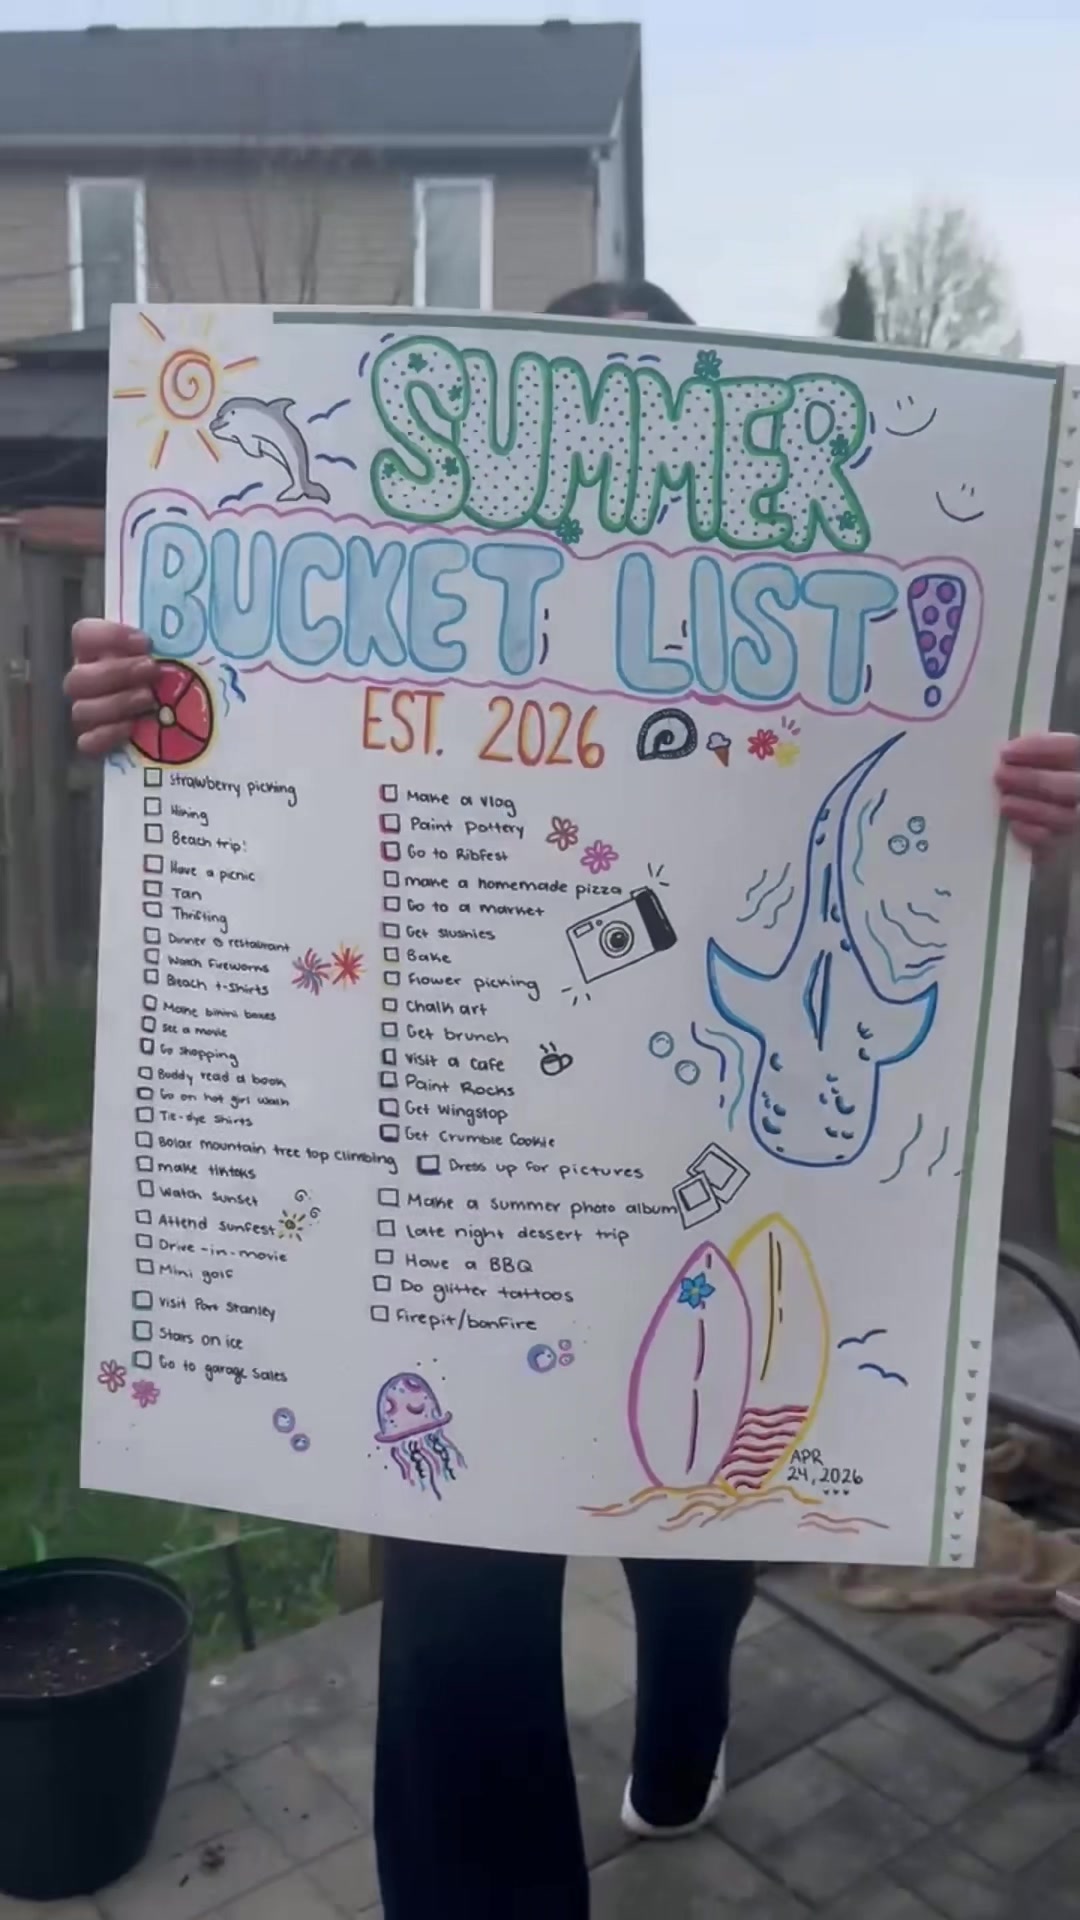 SUMMER
BUCKET LIST!
EST. 2026
strawberry picking
Hiking
Beach trip!
Have a picnic
Tan
Thrifting
Dinner @ restaurant
Watch Fireworks
Beach t-shirts
Make bikini boxes
See a movie
Go shopping
Buddy read a book
Go on hot girl walk
Tie-dye shirts
Boler mountain tree top climbing
make tiktoks
Watch sunset
Attend sunfest
Drive-in-movie
Mini golf
Visit Port Stanley
Stars on ice
Go to garage sales
Make a vlog
Paint Pottery
Go to Ribfest
make a homemade pizza
Go to a market
Get slushies
Bake
Flower picking
Chalk art
Get brunch
Visit a cafe
Paint Rocks
Get Wingstop
Get Crumble Cookie
Dress up for pictures
Make a summer photo album
Late night dessert trip
Have a BBQ
Do glitter tattoos
Firepit/bonfire
APR
24, 2026